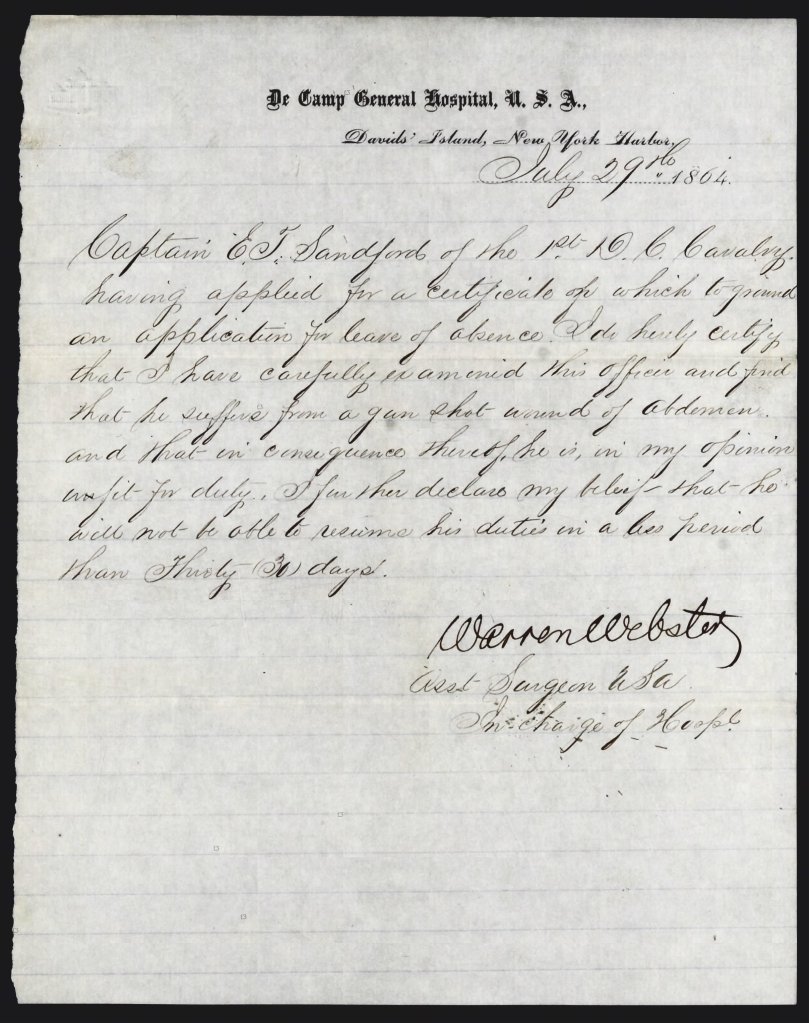 De Camp General Hospital, U. S. A.,
Davids' Island, New York Harbor,
July 29th 1864.
Captain E. T. Sandford of the 1st D. C. Cavalry.
having applied for a certificate on which to ground
an application for leave of absence. I do hereby certify
that I have carefully examined this officer and find
that he suffers from a gun shot wound of abdomen.
and that in consequence thereof, he is, in my opinion
unfit for duty. I further declare my belief that he
will not be able to resume his duties in a less period
than Thirty (30) days.
Warren Webster
Asst Surgeon USA
In charge of Hospl.